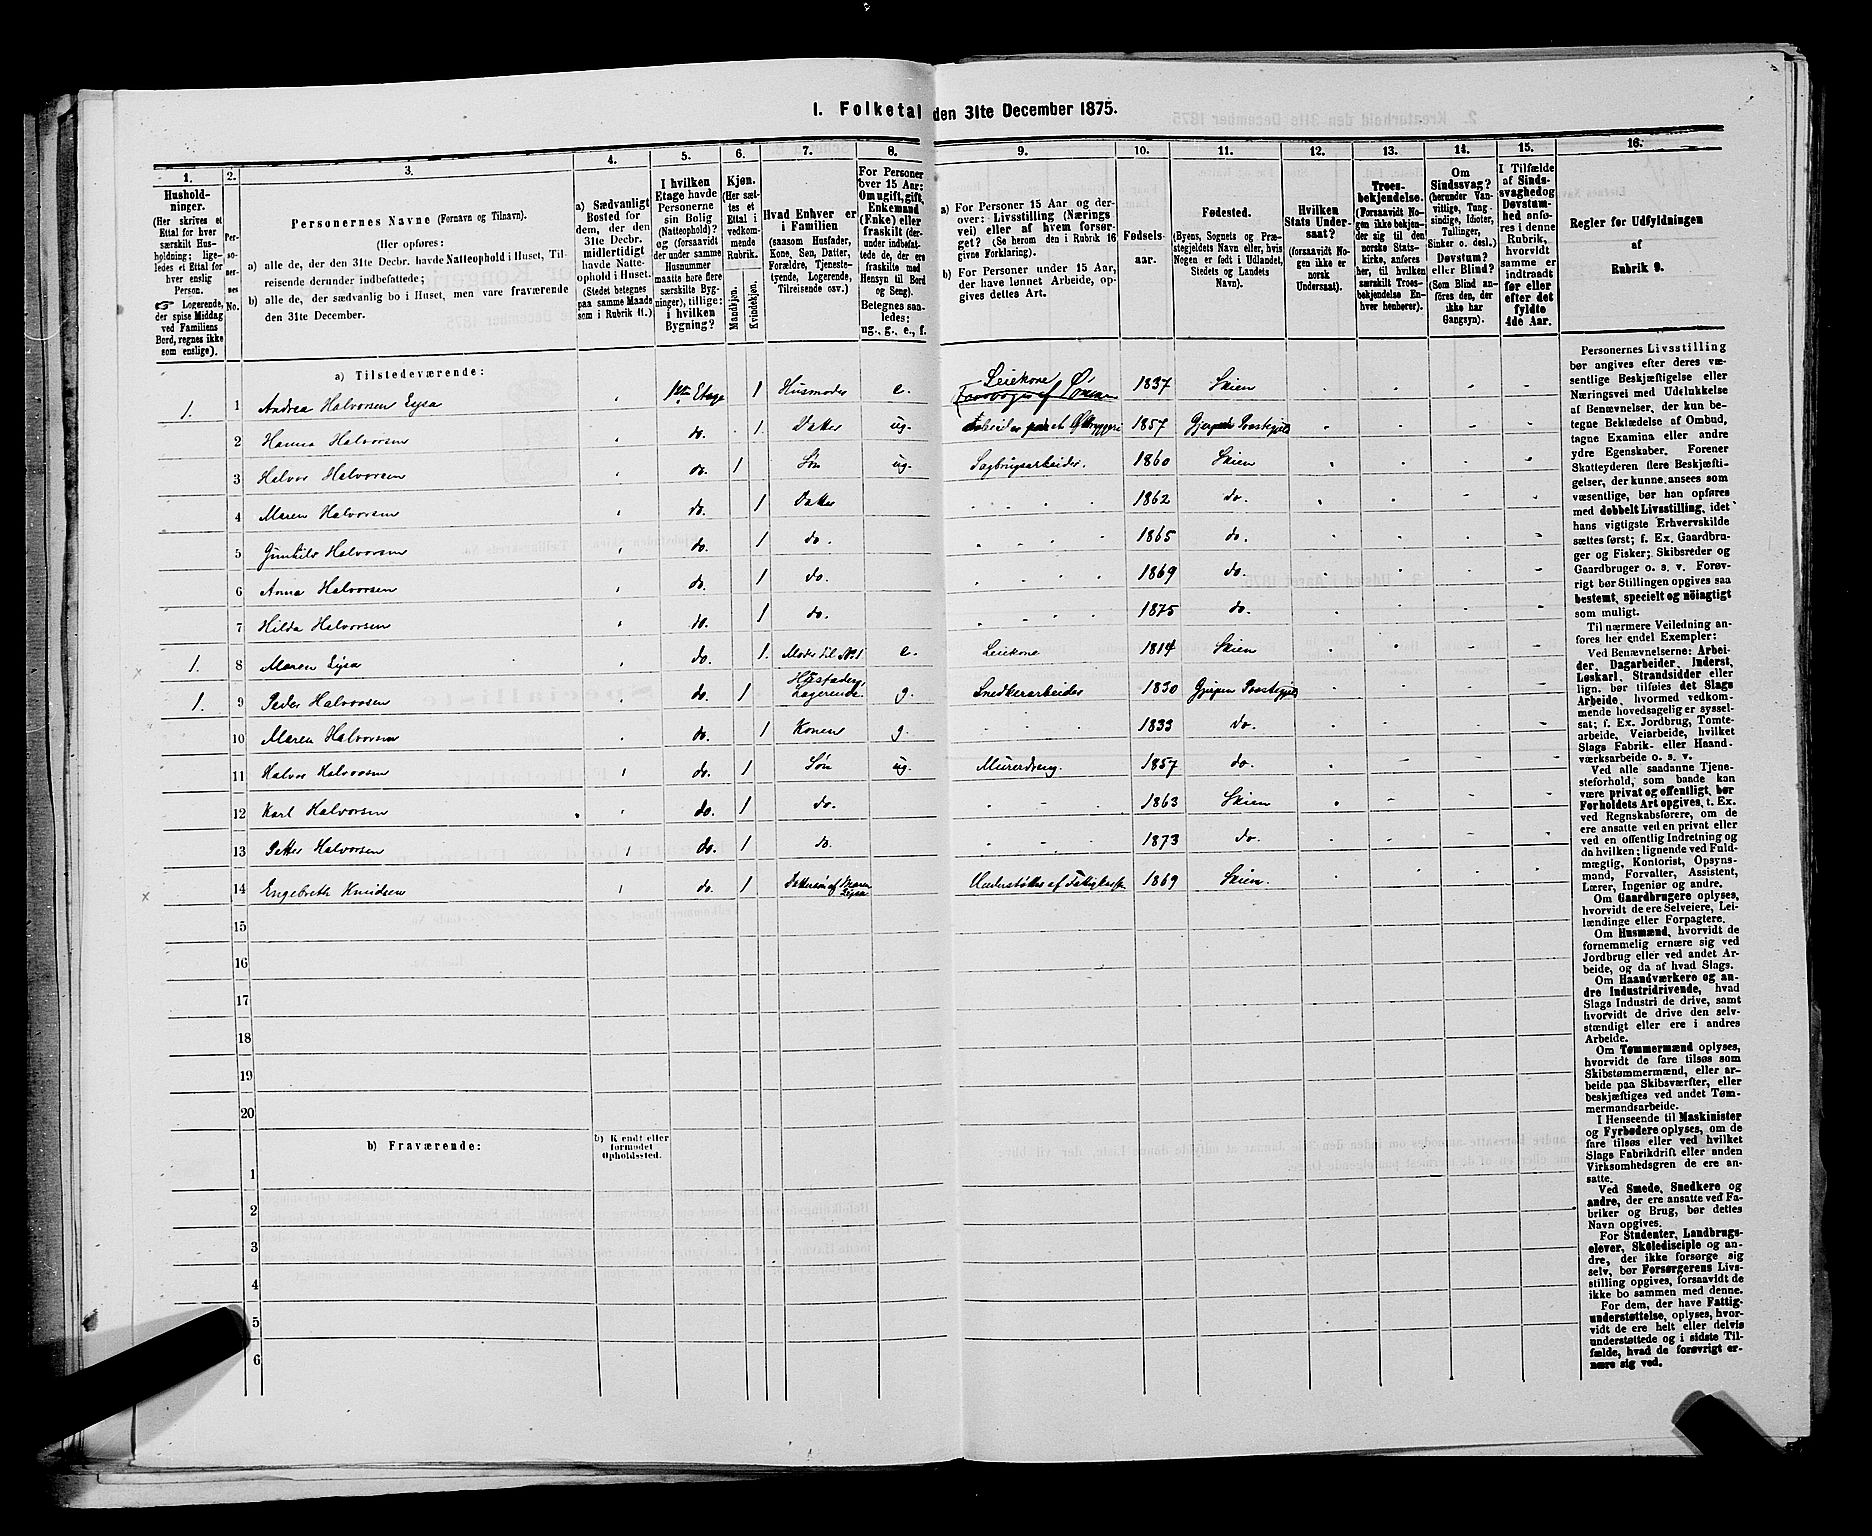 I. Folketal den 31te December 1875.
1. 2. 3. 4. 5. 6. 7. 8. 9. 10. 11. 12. 13. 14. 15. 16.
Husholdninger.
(Her skrives et
Ettal for hver
særskilt Husholdning;
ligeledes et Ettal for
hver enslig
Person.
☞ Logerende,
der spise Middag
ved Familiens
Bord, regnes ikke
som enslige).
Personernes No.
Personernes Navne (Fornavn og Tilnavn).
(Her opføres:
a) alle de, der den 31te Decbr. havde Natteophold i Huset, Tilreisende derunder indbefattede;
b) alle de, der sædvanlig bo i Huset, men vare fraværende
den 31te December.
a) Sædvanligt
Bosted for
dem, der den
31te Decbr.
midlertidigt
havde Natteophold i Huset.
(Stedet betegnes
paa samme Maade
som i Rubrik 11.)
I hvilken
Etage havde
Personerne
sin Bolig
(Natteophold)?
og (forsaavidt
der under samme
Husnummer
maatte høre flere
særskilte Bygninger), tillige:
i hvilken
Bygning?
Kjøn.
(Her sættes et
Ettal i
vedkommende
Rubrik.
Mandkjøn.
Kvindekjøn.
Hvad Enhver er
i Familien
(saasom Husfader,
Kone, Søn, Datter,
Forældre, Tjenestetyende, Logerende,
Tilreisende osv.)
For Personer
over 15 Aar:
Om ugift, gift,
Enkemand
(Enke) eller
fraskilt (derunder indbefattede de, der ere
fraskilte med
Hensyn til Bord
og Seng).
Betegnes saaledes:
ug., g., e., f.
a) For Personer 15 Aar og derover: Livsstilling (Næringsvei) eller af hvem forsørget? (Se herom den i Rubrik 16
givne Forklaring).
b) For Personer under 15 Aar,
der have lønnet Arbeide, opgives dettes Art.
Fødselsaar.
Fødested.
(Byens, Sognets og Præstegjeldets Navn eller, hvis
Nogen er født i Udlandet,
Stedets og Landets
Navn).
Hvilken
Stats Undersaat?
(forsaavidt Nogen ikke er
norsk
Undersaat).
Troesbekjendelse.
(Forsaavidt Nogen ikke bekjender sig til den
norske Statskirke, anføres
her, til hvilken
særskilt Troesbekjendelse Enhver henhører).
Om
Sindssvag?
(herunder Vanvittige, Tungsindige, Idioter,
Tullinger,
Sinker o. desl.)
Døvstum?
eller Blind?
(Som Blind anføres den, der
ikke har
Gangsyn).
I Tilfælde
af Sindssvaghed og
Døvstumhed anføres i denne
Rubrik,
hvorvidt
samme er
indtraadt
før eller
efter det
fyldte
4de Aar.
Regler for Udfyldningen
af
Rubrik 9.
a) Tilstedeværende:
1. 1 Andrea Halvorsen Lysa 1ste Etage 1 Husmoder e. Leiekone 1837 Skien
2 Hanna Halvorsen do. 1 Datter ug. 1857 Gjerpen Præstegjeld
3 Halvor Halvorsen do. 1 Søn ug. Sagbrugsarbeider. 1860 Skien
4 Maren Halvorsen do. 1 Datter 1862 do.
5 Gunhild Halvorsen do. 1 do. 1865 do.
6 Anna Halvorsen do. 1 do. 1869 do.
7 Hilda Halvorsen do. 1 do. 1875 do.
1. 8 Maren Lysa do. 1. Moder til No. 1 e. Leiekone 1814 Skien
1. 9 Peder Halvorsen do. 1 Husfader, Logerende g. Snedkerarbeider 1830 Gjerpen Præstegjeld
10 Maren Halvorsen do. 1 Konen g. 1833 do.
11 Halvor Halvorsen do. 1 Søn ug. Murerdreng. 1857 do.
12 Karl Halvorsen do. 1 do. 1863 Skien
13 Petter Halvorsen do. 1 do. 1873 do.
x 14 Engebreth Knudsen do. 1 Dattersøn af Maren Lysa Understøttes af Fattigkassen 1869 Skien.
15
16
17
18
19
20
b) Fraværende:
b) Kjendt eller
formodet
Opholdssted.
1
2
3
4
5
6
Personernes Livsstilling
bør angives efter deres væsentlige Beskjæftigelse eller
Næringsvei med Udelukkelse
af Benævnelser, der kun betegne Beklædelse af Ombud,
tagne Examina eller andre
ydre Egenskaber. Forener
Skatteyderen flere Beskjæftigelser, der kunne ansees som
væsentlige, bør han opføres
med dobbelt Livsstilling, idet
hans vigtigste Erhvervskilde
sættes først; f. Ex. Gaardbruger og Fisker; Skibsreder og
Gaardbruger o. s. v. Forøvrigt bør Stillingen opgives saa
bestemt, specielt og nöiagtigt
som muligt.
Til nærmere Veiledning anføres her endel Exempler:
Ved Benævnelserne: Arbeider, Dagarbeider, Inderst,
Løskarl, Strandsidder eller
lign. bør tilføies det Slags
Arbeide, hvormed vedkommende hovedsagelig er sysselsat; f. Ex. Jordbrug, Tomtearbeide, Veiarbeide, hvilket
Slags Fabrik- eller Haandværksarbeide o. s. v.
Ved alle saadanne Tjenesteforhold, som baade kan
være privat og offentligt, bør
Forholdets Art opgives, t. Ex.
ved Regnskabsførere, om de
ere ansatte ved en privat eller
ved en offentlig Indretning og
da hvilken; lignende ved Fuldmæglig, Kontorist, Opsynsmand, Forvalter, Assistent,
Lærer, Ingeniør og andre.
Om Gaardbrugere oplyses,
hvorvidt de ere Selveiere, Leilændinge eller Forpagtere.
Om Husmænd, hvorvidt de
fornemmelig ernære sig ved
Jordbrug eller ved andet Arbeide, og da af hvad Slags.
Om Haandværkere og andre Industridrivende, hvad
Slags Industri de drive, samt
hvorvidt de drive den selvstændigt eller ere i andres
Arbeide.
Om Tømmermænd oplyses,
hvorvidt de fare tilsøs som
Skibstømmermænd, eller arbeide paa Skibsværfter, eller
beskjæftiges ved andet Tømmermandsarbeide.
I Henseende til Maskinister
og Fyrbødere oplyses, om de
fare tilsøs eller ved hvilket
Slags Fabrikdrift eller anden
Virksomhedsgren de ere ansatte.
Ved Smede, Snedkere og
andre, der ere ansatte ved Fabriker og Brug, bør dettes
Navn opgives.
For Studenter, Landbrugselever, Skoledisciple og andre, der ikke forsørge sig
selv, bør Forsørgerens Livsstilling opgives, forsaavidt de
ikke bo sammen med denne.
For dem, der have Fattigunderstøttelse, oplyses, hvorvidt de ere helt eller delvis
understøttede og i sidste Tilfælde, hvad de forøvrigt ernære sig ved.